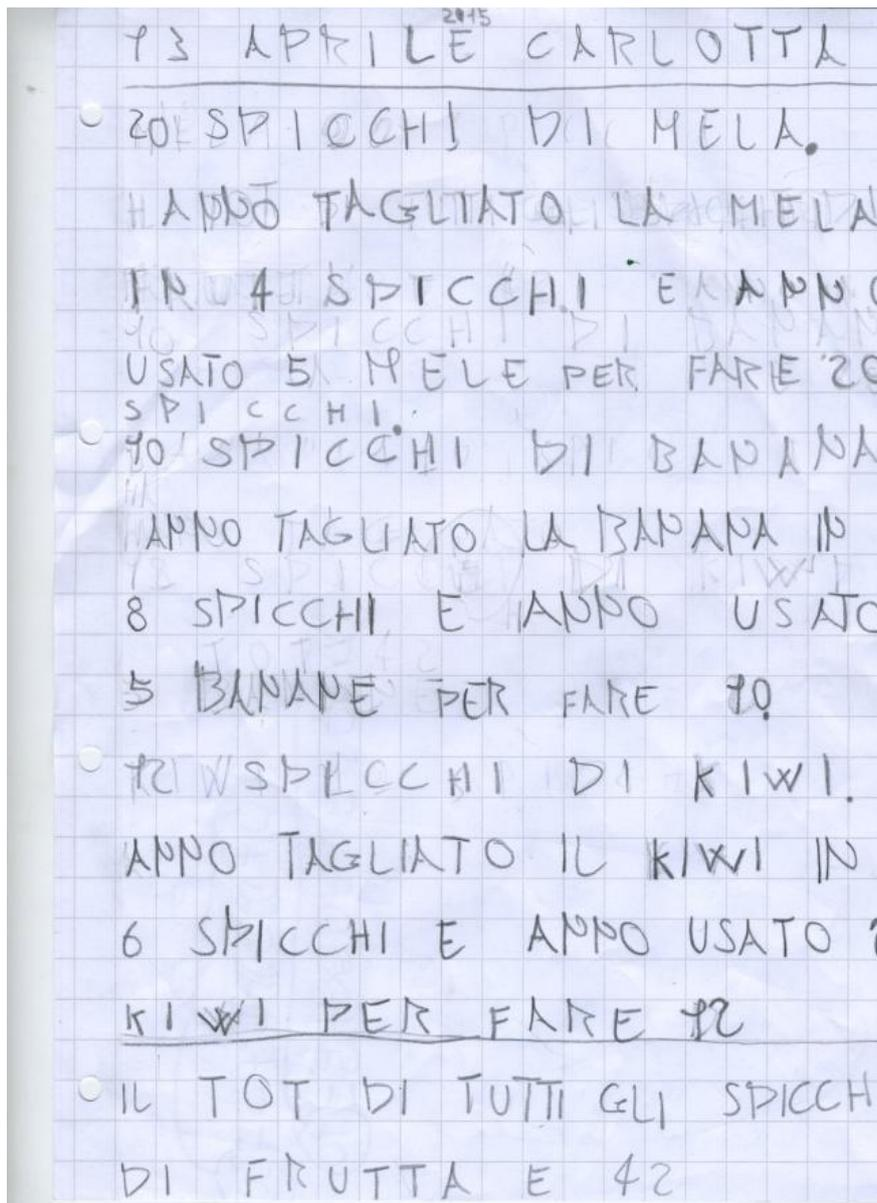 2015
13 APRILE CARLOTTA
20 SPICCHI DI MELA.
HANNO TAGLIATO LA MELA
IN 4 SPICCHI E ANNO
USATO 5 MELE PER FARE 20
SPICCHI.
10 SPICCHI DI BANANA
ANNO TAGLIATO LA BANANA IN
8 SPICCHI E ANNO USATO
5 BANANE PER FARE 10.
12 SPICCHI DI KIWI.
ANNO TAGLIATO IL KIWI IN
6 SPICCHI E ANNO USATO 2
KIWI PER FARE 12
IL TOT DI TUTTI GLI SPICCH
DI FRUTTA E 42